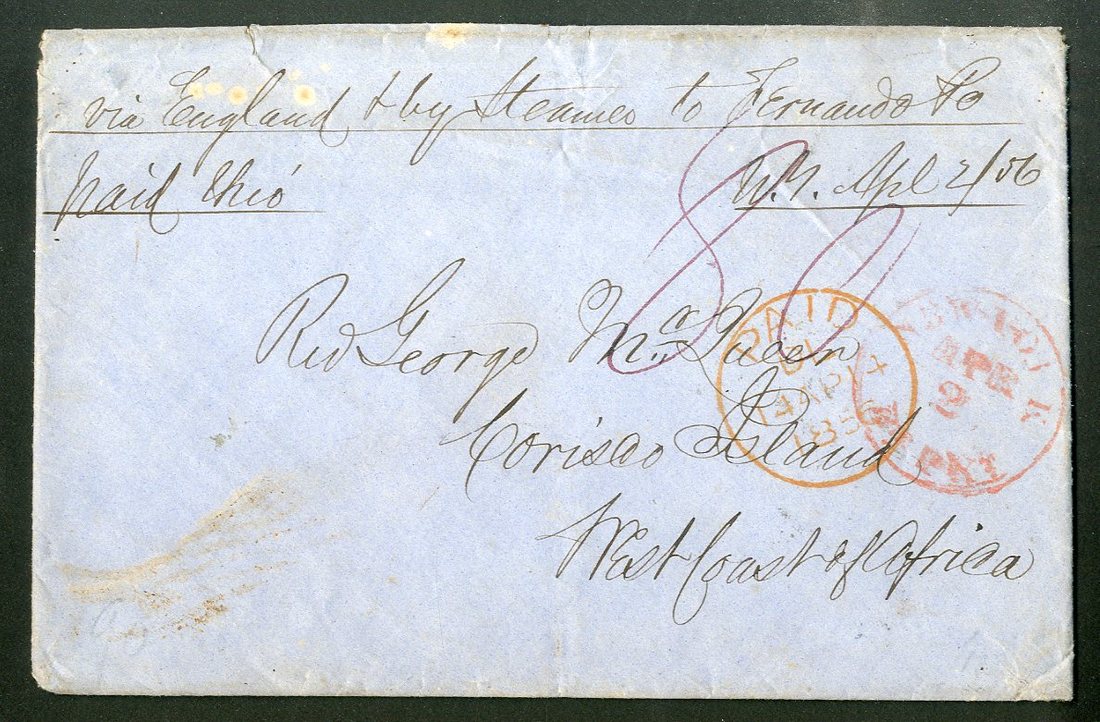 via England & by Steamer to Fernando Po
paid thro'
N.Y. Apl 2/56
Rev George McQueen
Corisco Island
West Coast of Africa
PAID
14 AP 14
1856
NEW-YORK
APR
2
PKT